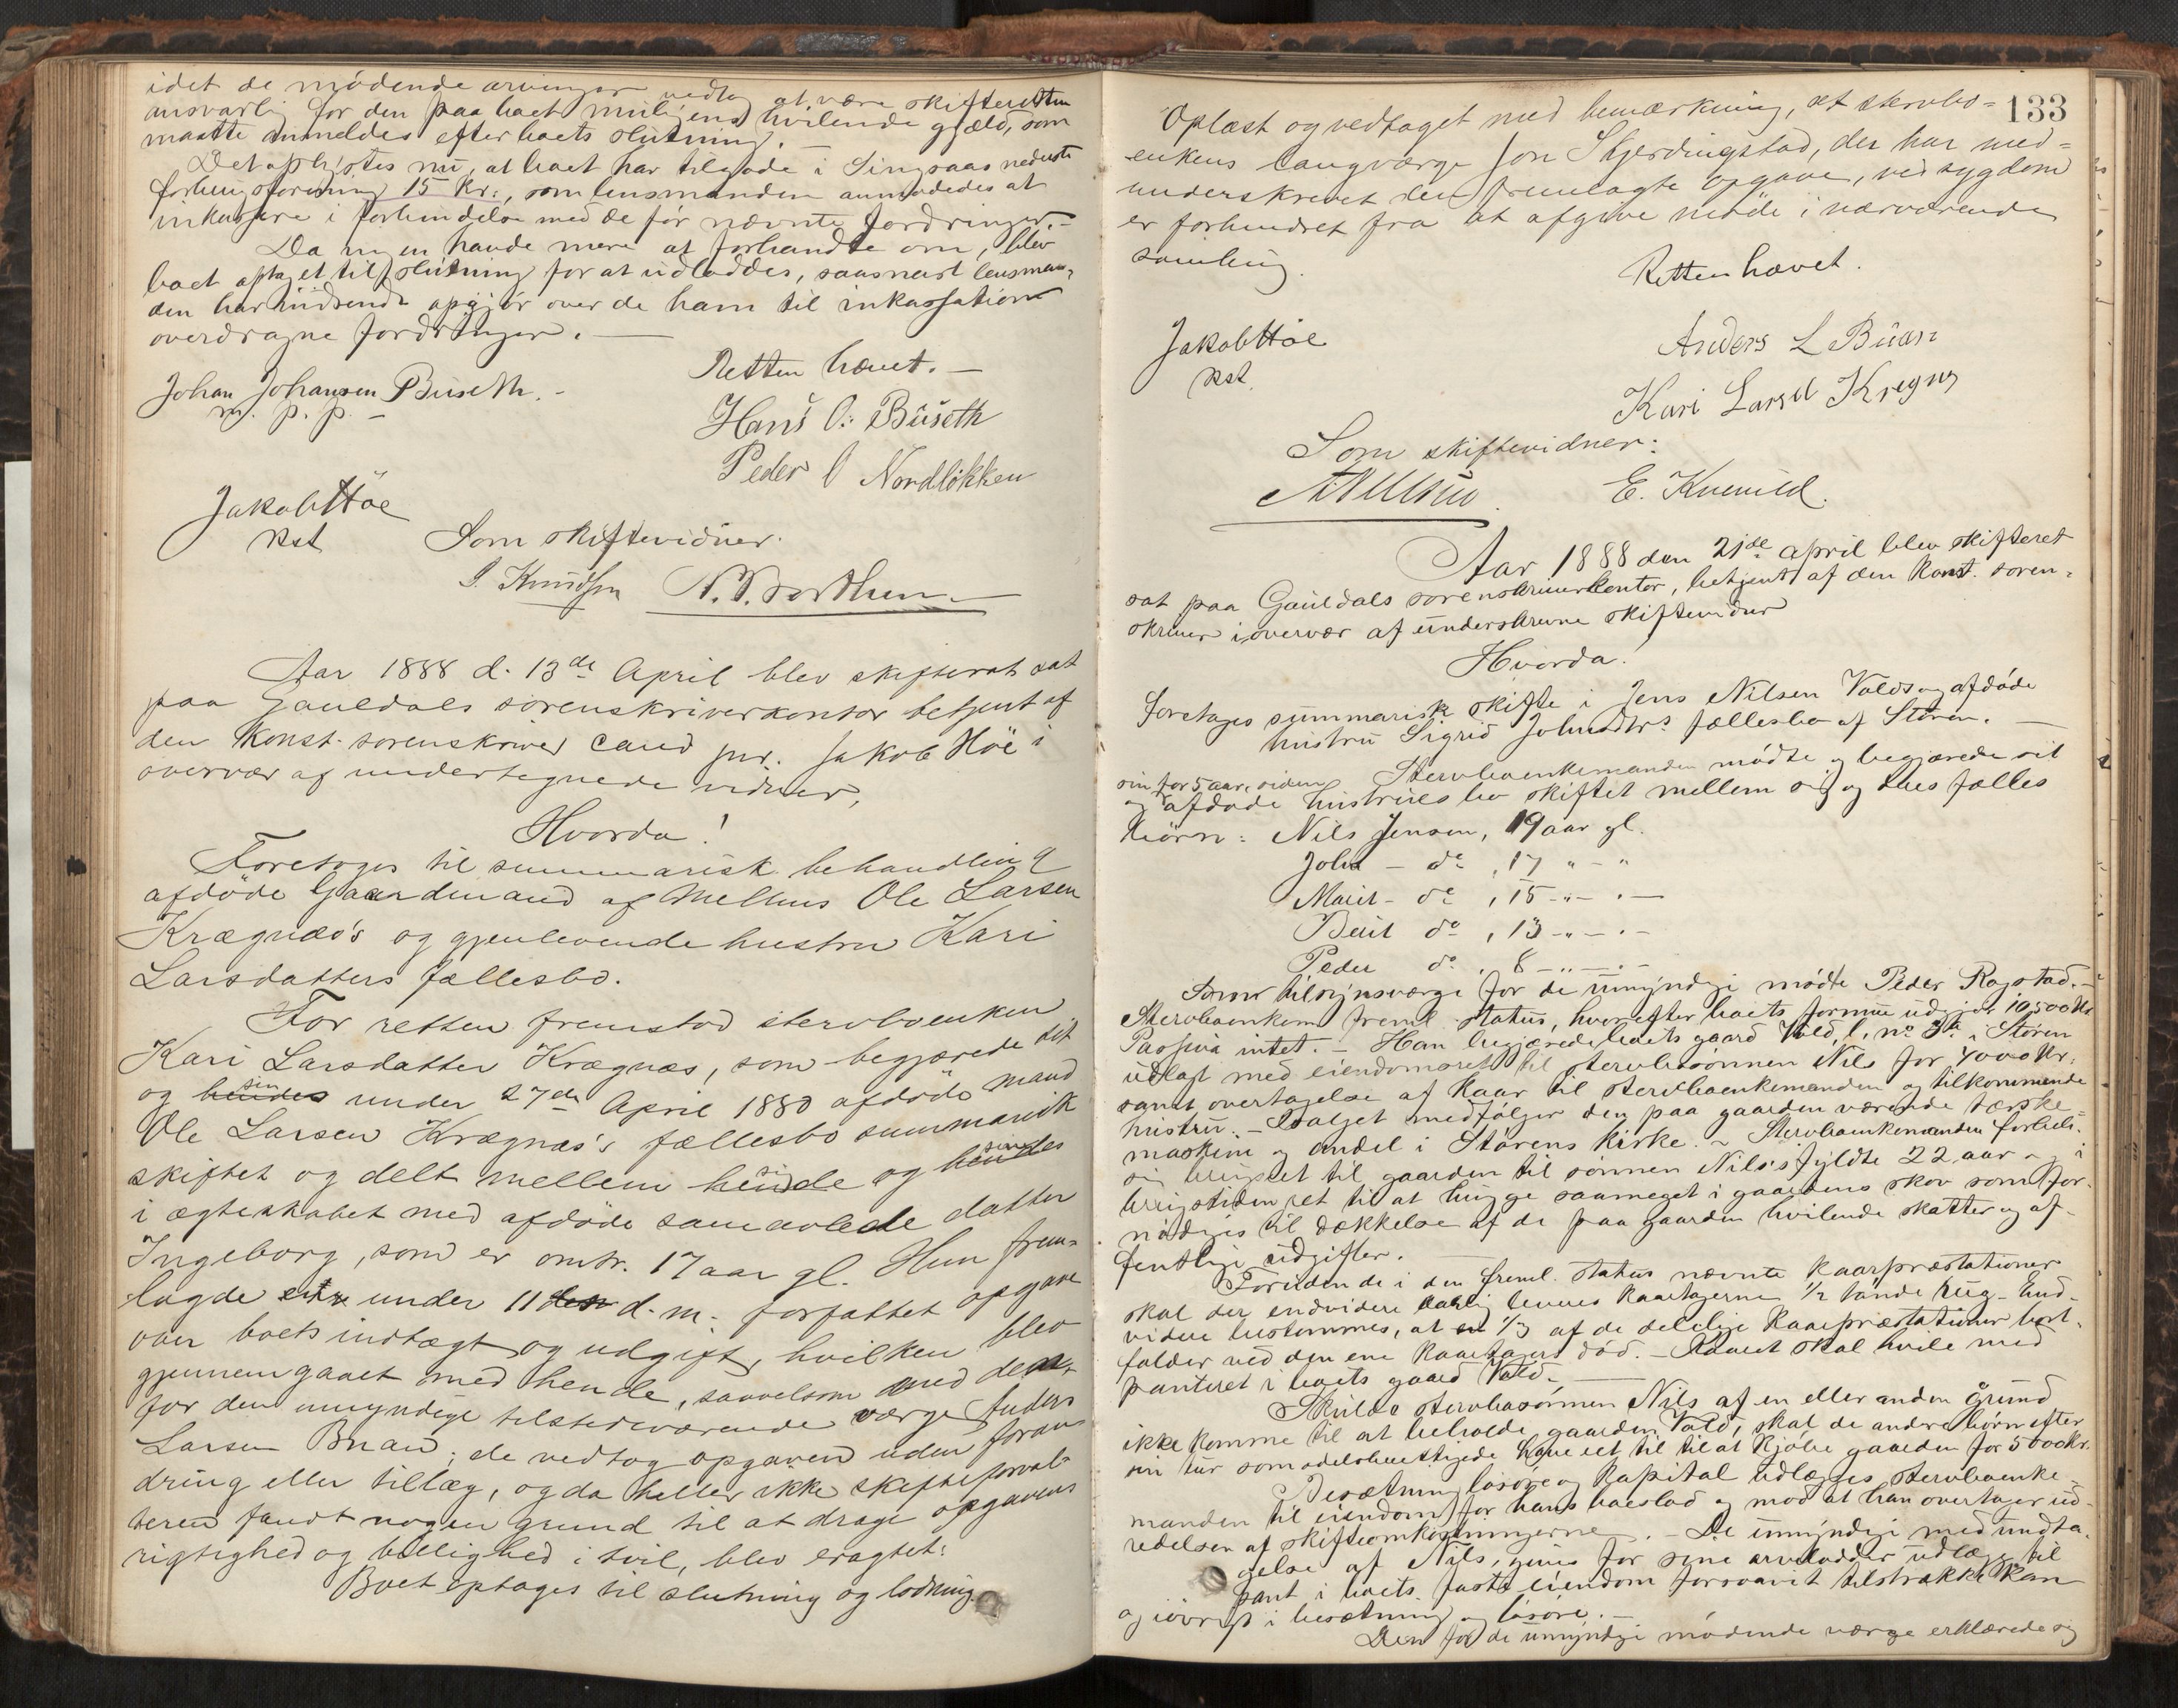 idet de mödende arvinger vedtog at være skifteretten
ansvarlig for den paa boet muligens hvilende gjæld, som
maatte anmeldes efter boets slutning. —
Det oplystes nu, at boet har tilgode i Singsaas nederste
forbrugsforening 15 Kr:, som lensmanden anmodedes at
inkassere i forbindelse med de før nævnte fordringer. —
Da ingen havde mere at forhandle om, blev
boet optaget til slutning for at udloddes, saasnart lensman-
den har indsendt opgjör over de ham til inkassation
overdragne fordringer. —
Retten hævet. —
Johan Johansen Buseth. -
m. p. p. -
Hans O: Buseth
Peder O Nordlökken
Jakob Höe
Kst
Som skiftevidner.
J. Knudsen
Aar 1888 d. 13de April blev skifteret sat
paa Gauldals sorenskriverkontor betjent af
den Konst. sorenskriver cand jur. Jakob Höe i
overvær af undertegnede vidner,
Hvorda!
Foretoges til summarisk behandling
afdöde Gaardmand af Melhus Ole Larsen
Krægnæs's og gjenlevende hustru Kari
Larsdatters fællesbo.
For retten fremstod stervboenken
Kari Larsdatter Krægnæs, som begjærede sit
og hendes sin under 27de April 1880 afdöde mand
Ole Larsen Krægnæs's fællesbo summarisk
skiftet og delt mellem hende sig og hendes sin
i ægteskabet med afdöde samavlede datter
Ingeborg, som er omtr. 17 aar gl. Hun frem-
lagde under 11 den d. m. forfattet opgave
over boets indtægt og udgift, hvilken blev
gjennemgaaet med hende, saavelsom med den
for den umyndige tilstedeværende værge Anders
Larsen Buan; de vedtog opgaven uden foran-
dring eller tillæg, og da heller ikke skifteforval-
teren fandt nogen grund til at drage opgavens
rigtighed og billighed i tvil, blev eragtet:
Boet optages til slutning og lodning.
133
Oplæst og vedtaget med bemærkning, at stervbo-
enkens laugværge Jon Skjerdingstad, der har med-
underskrevet den fremlagte opgave, ved sygdom
er forhindret fra at afgive möde i nærværende
samling.
Retten hævet.
Jakob Höe
Kst.
Anders L Buan
Kari Larsd Kregnes
Som skiftevidner:
E. Kvenild.
Aar 1888 den 21de april blev skifteret
sat paa Gauldals sorenskriverkontor, betjent af den Konst. soren-
skriver i overvær af underskrevne skiftevidner
Hvorda!
Foretoges summarisk skifte i Jens Nilsen Volds og afdöde
hustru Sigrid Johnsdtr's fællesbo af Stören. —
Stervboenkemanden mödte og begjærede sit
og sin for 5 aar siden afdöde hustrues bo skiftet mellem sig og deres fælles
börn: Nils Jensen, 19 aar gl.
John - do , 17 " - "
Marit - do , 15 - " - " -
Berit do , 13 - " - " -
Peder do , 8 - " - " -
Som tilsynsværge for de umyndige mödte Peder Rogstad. -
Stervboenkem. freml. status, hvorefter boets formue udgjør 10,500 Kr
Passiva intet. — Han begjærede boets gaard Vold, l. no i Stören
udlagt med eiendomsret til stervbosønnen Nils for 4000 Kr:
samt overtagelse af Kaar til stervboenkemanden og tilkommende
hustru. — I salget medfölger den paa gaarden værende tærske-
maskine og andel i Störens kirke. ~ Stervboenkemanden forbeh.
sig brugsret til gaarden til sönnen Nils's fyldte 22 aar og i
brugstiden ret til at hugge saameget i gaardens skov som for-
nödiges til dækkelse af de paa gaarden hvilende skatter og of-
fentlige udgifter. —
Foruden de i den freml. status nævnte kaarpræstationer
skal der endvidere aarlig leveres kaartagerne 1/2 tönde rug. End-
videre bestemmes, at 1/3 af de delelige Kaarpræstationer bort-
falder ved den ene kaartagers död. — Kaaret skal hvile med
panteret i boets gaard Vold. —
Skulde stervbosønnen Nils af en eller anden grund
ikke komme til at beholde gaarden Vold, skal de andre börn efter
sin tur som odelsberettigede have ret til til at kjöbe gaarden for 5000 Kr.
Besætning lösöre og kapital udlægges stervboenke-
manden til eiendom for hans boeslod og mod at han overtager ud-
redelsen af skifteomkostningerne. — De umyndige med undta-
gelse af Nils, gives for sine arvelodder udlæg til
pant i boets faste eiendom forsaavidt tilstrække kan
og iövrigt i besætning og lösöre. —
Den for de umyndige mödende værge erklærede sig